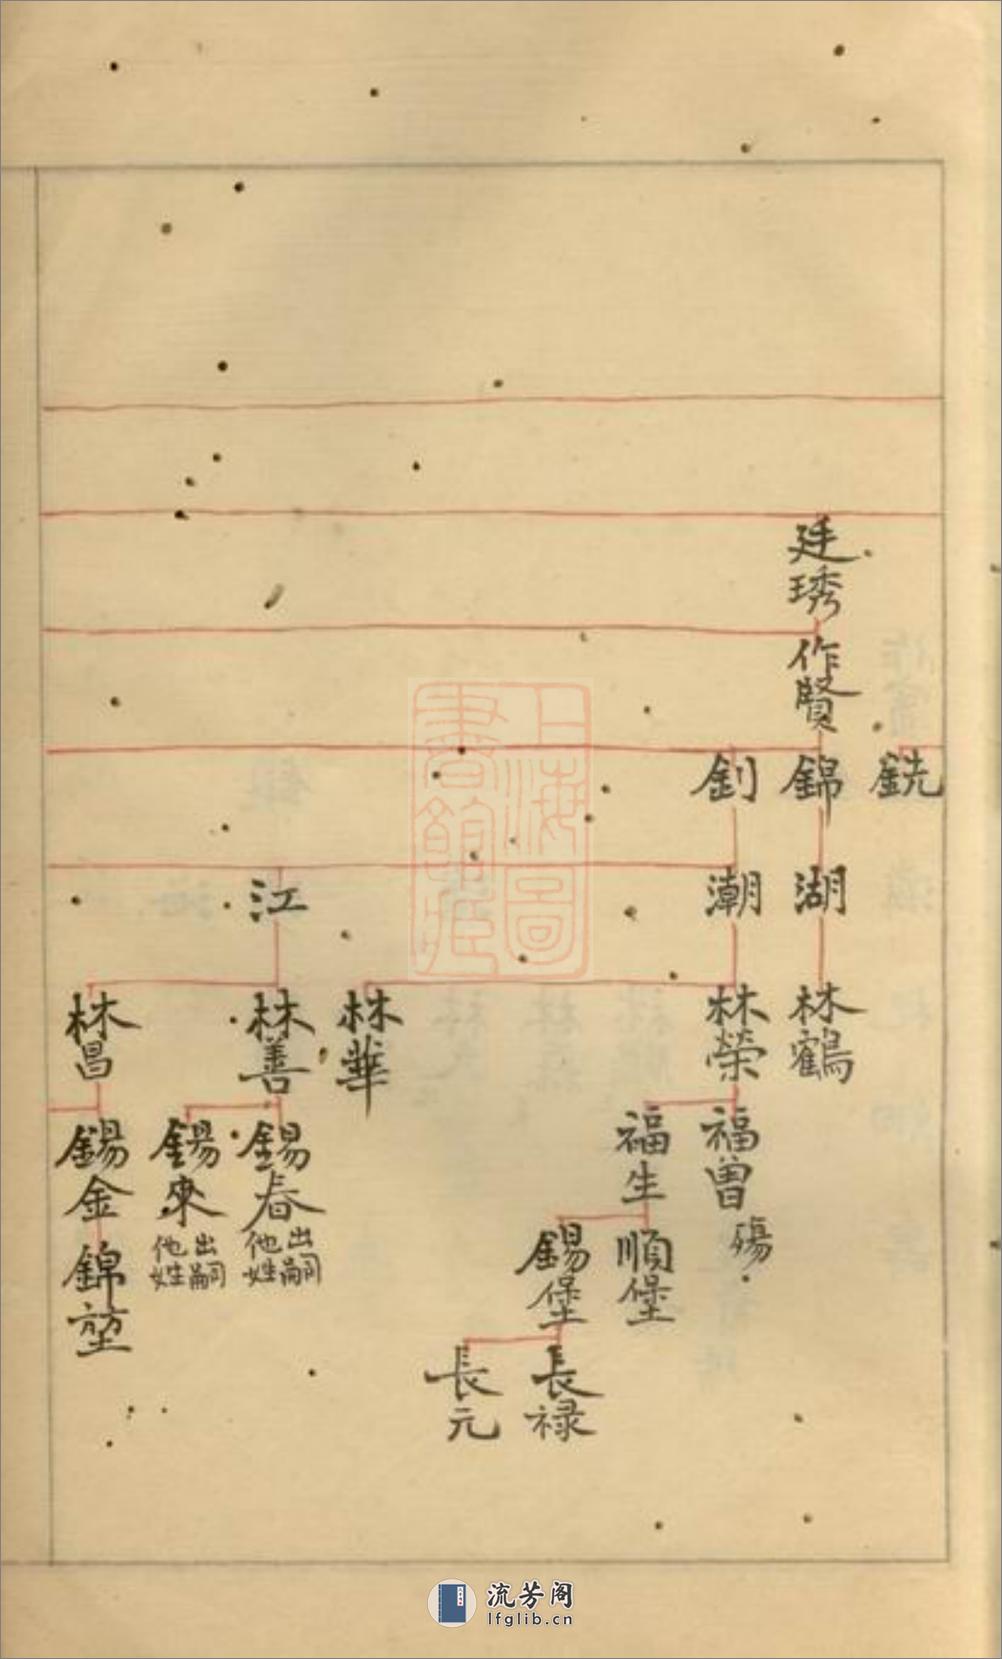 銑
廷琇
作賢
錦
湖
林鶴
釗
潮
林榮
福曾
殤
福生
順堡
錫堡
長禄
長元
林華
江
林善
錫春
出嗣
他姓
錫來
出嗣
他姓
林昌
錫金
錦堃
上海圖
書館藏
流芳阁
lfglib.cn